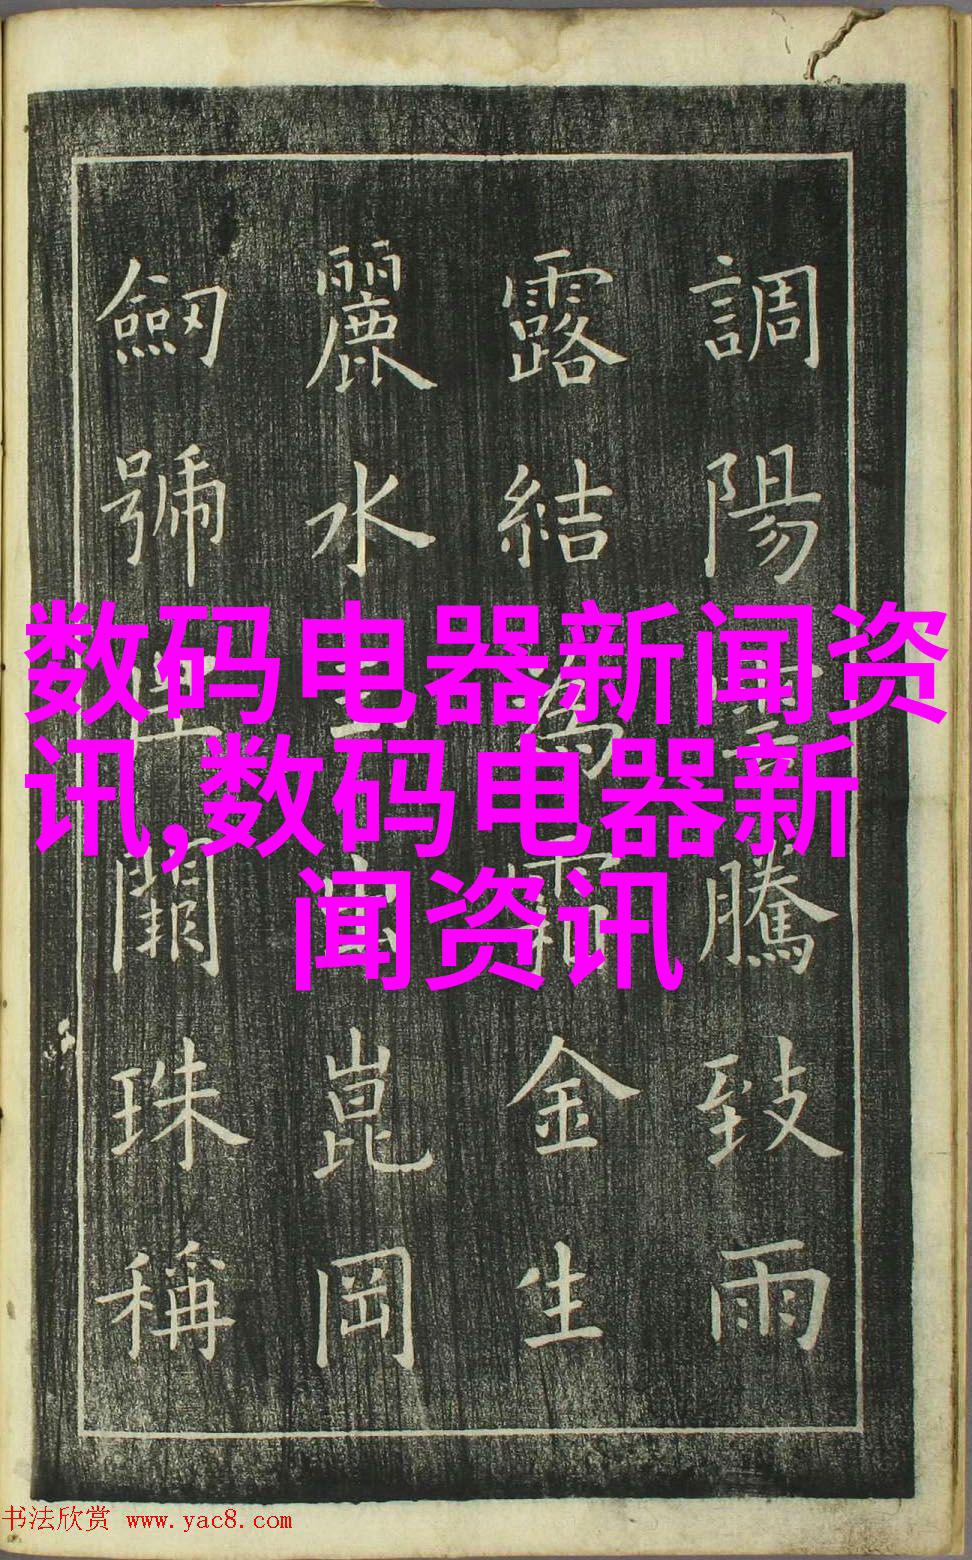 調陽雲騰致雨
露結為霜金生
麗水崑岡
劒號闕珠稱
数码电器新闻资
讯,数码电器新
闻资讯
书法欣赏 www.yac8.com